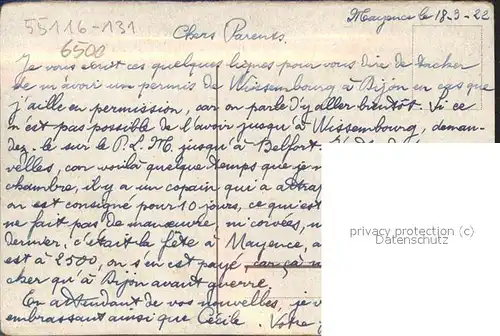 55116-131
6500
Mayence le 18-3-22
Chers Parents.
Je vous écrit ces quelques lignes pour vous dire de tacher
de m'avoir un permis de Wissembourg à Dijon en cas que
j'aille en permission, car on parle d'y aller bientôt. Si ce
n'est pas possible de l'avoir jusqu'à Wissembourg, deman-
dez-le sur le P.L.M. jusqu'à Belfort.
velles, car voilà quelque temps que je n
chambre, il y a un copain qui a attrap
on est consigné pour 10 jours, ce qui est
ne fait pas de manœuvre, ni corvées, n
dernier, c'était la fête à Mayence, a
est à 2500, on s'en est payé car ça n
cher qu'à Dijon avant guerre.
En attendant de vos nouvelles, je v
embrassant ainsi que Cécile. Votre
privacy protection (c)
Datenschutz